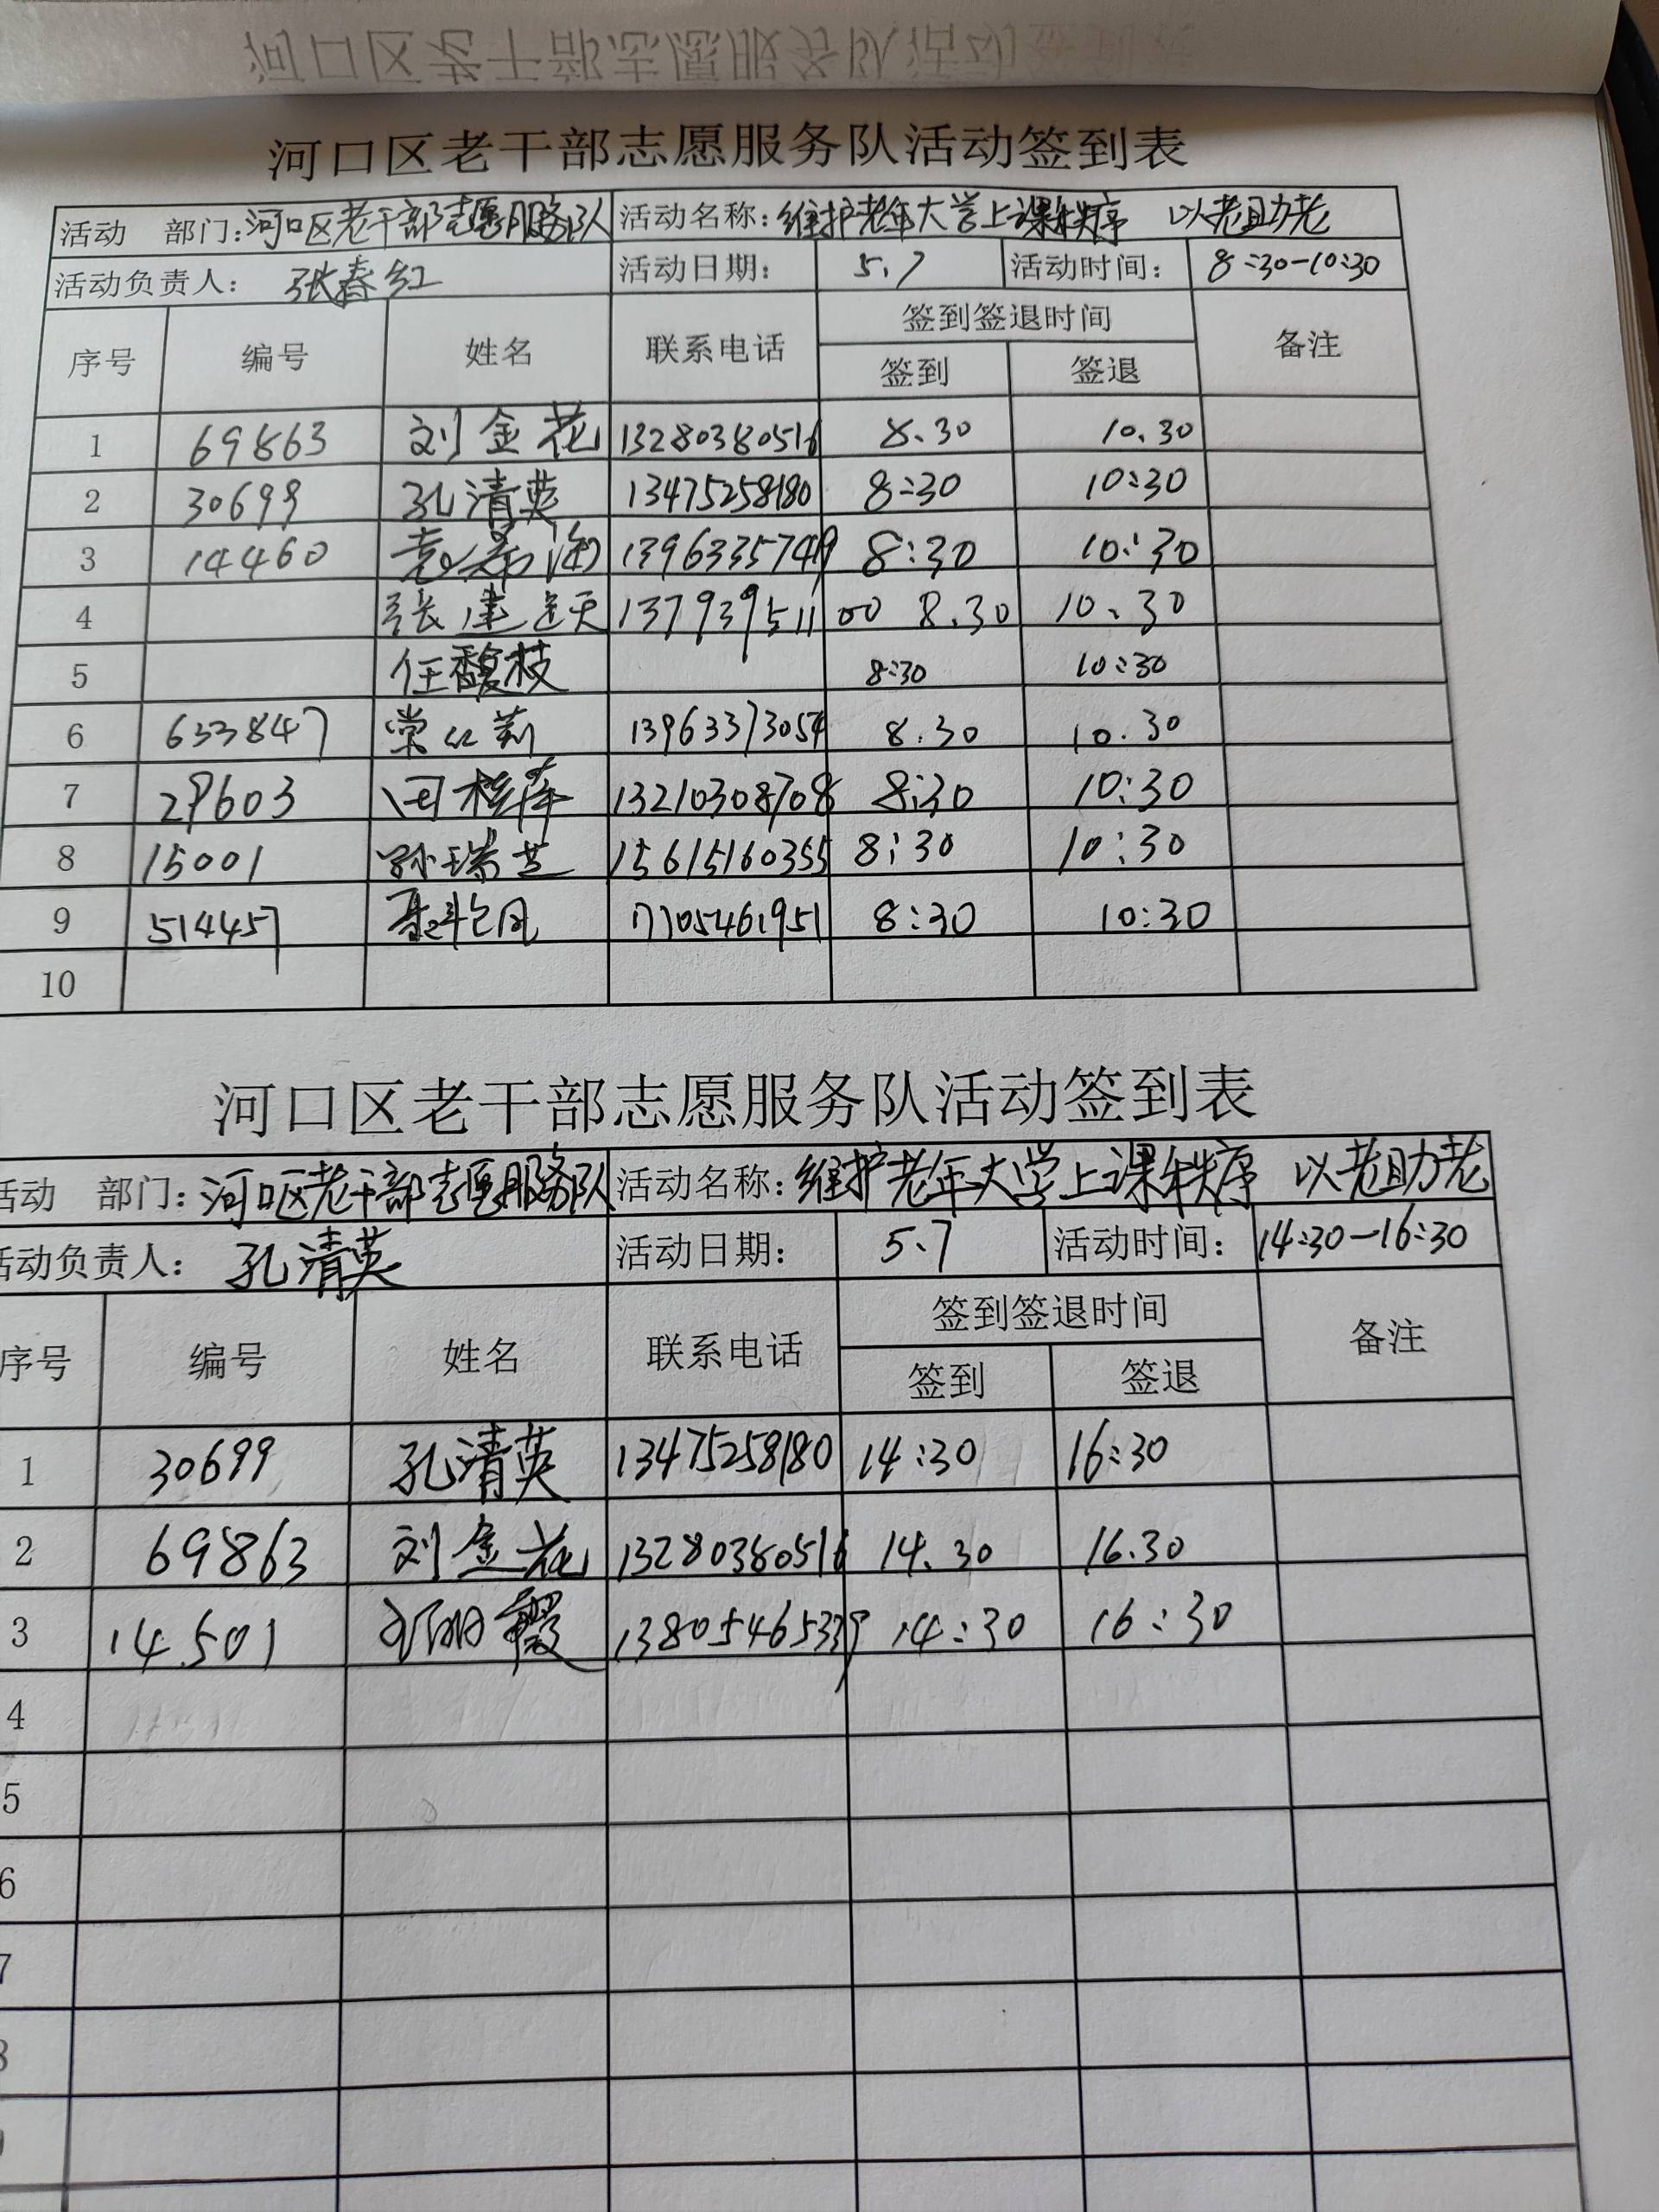 河口区老干部志愿服务队活动签到表
活动 部门：河口区老干部志愿服务队 活动名称：维护老年大学上课秩序 以老助老
活动负责人： 张春红 活动日期： 5.7 活动时间： 8:30-10:30
序号 编号 姓名 联系电话 签到签退时间 备注
签到 签退
1 69863 刘金花 13280380516 8.30 10.30
2 30699 孔清英 13475258180 8:30 10:30
3 14460 1396335749 8:30 10:30
4 张建 13793951100 8.30 10.30
5 任馥枝 8:30 10:30
6 633847 常红莉 13963373054 8.30 10.30
7 29603 13210308708 8:30 10:30
8 15001 孙瑞芝 15615160355 8:30 10:30
9 514457 17705461951 8:30 10:30
10
河口区老干部志愿服务队活动签到表
活动 部门：河口区老干部志愿服务队 活动名称：维护老年大学上课秩序 以老助老
活动负责人： 孔清英 活动日期： 5.7 活动时间： 14:30-16:30
序号 编号 姓名 联系电话 签到签退时间 备注
签到 签退
1 30699 孔清英 13475258180 14:30 16:30
2 69863 刘金花 13280380516 14.30 16.30
3 14501 13805465339 14:30 16:30
4
5
6
7
8